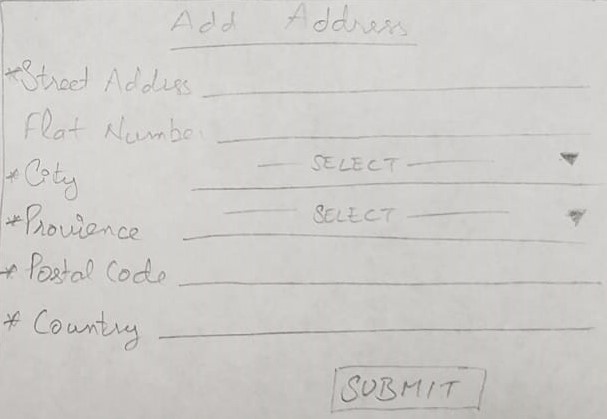 Add Address
*Street Address
Flat Number
*City — SELECT — ▼
*Provience — SELECT — ▼
*Postal Code
*Country
SUBMIT